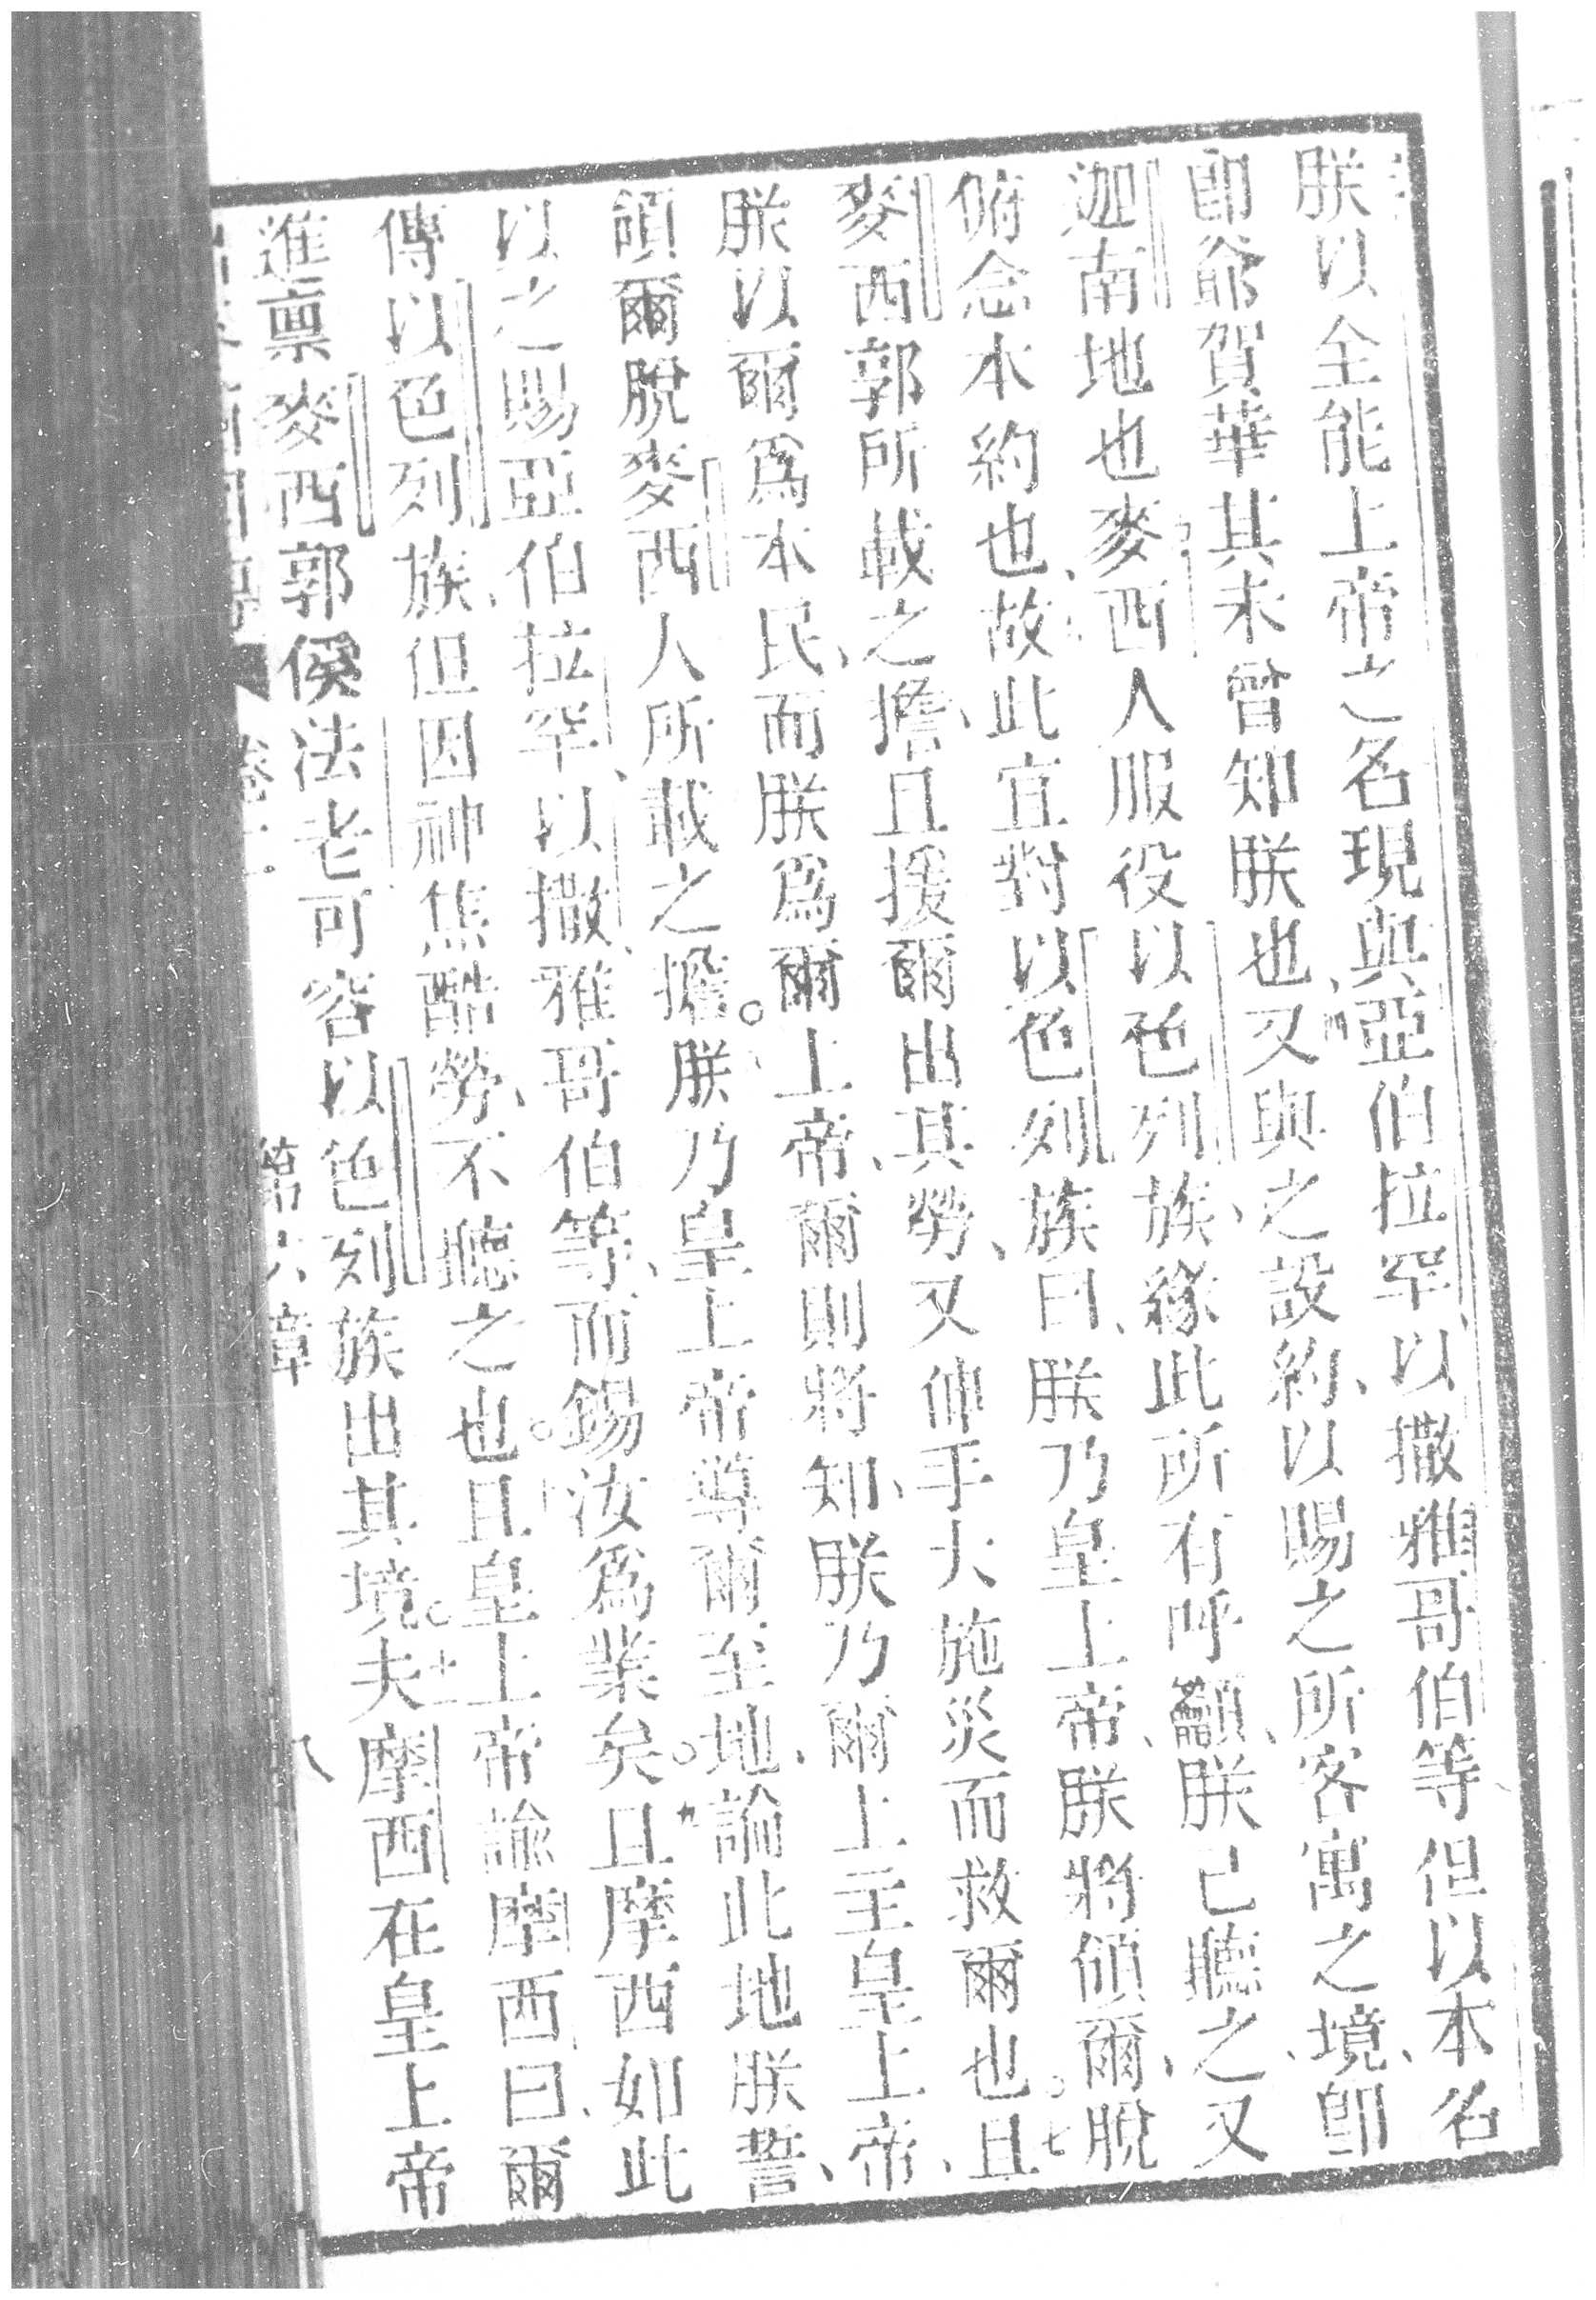 朕以全能上帝之名現與亞伯拉罕、以撒雅哥伯等但以本名
卽爺賀華其未曾知朕也、又與之設約、以賜之所客寓之境、卽
迦南地也麥西人服役以色列族、緣此所有呼籲、朕已聽之、又
俯念本約也、故此宜對以色列族曰、朕乃皇上帝、朕將領爾、脫
麥西郭所載之擔、且援爾出其勞、又伸手大施災而救爾也。七且
朕以爾爲本民、而朕爲爾上帝、爾則將知、朕乃爾上主皇上帝、
領爾脫麥西人所載之擔。朕乃皇上帝導爾至地、論此地朕誓、
以之賜亞伯拉罕、以撒、雅哥伯等、而錫汝爲業矣。九且摩西如此
傳以色列族、但因神焦酷勞、不聽之也。十且皇上帝諭摩西曰、爾
進稟麥西郭傒法老可容以色列族出其境。十二夫摩西在皇上帝
第六章
八